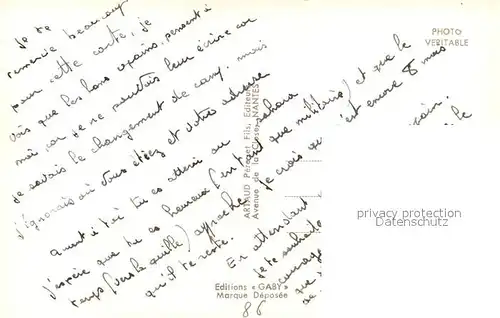 Je te
remercie beaucoup
pour cette carte, je
vois que les bons copains, pensent à
moi, car je ne pouvais leur écrire car
je savais le changement de camp. mais
j'ignorais où vous étiez et votre adresse
quant à toi tu es attéri au sahara
j'espère que tu es heureux (en tant que militaire) et que le
temps (vers la quille) approche. Je crois que c'est encore 8 mois
qu'il te reste.
En attendant
Je te souhaite
courage
que
de
PHOTO
VERITABLE
ARTAUD Père et Fils, Editeurs
Avenue de la Close, NANTES
Editions « GABY »
Marque Déposée
86
privacy protection
Datenschutz